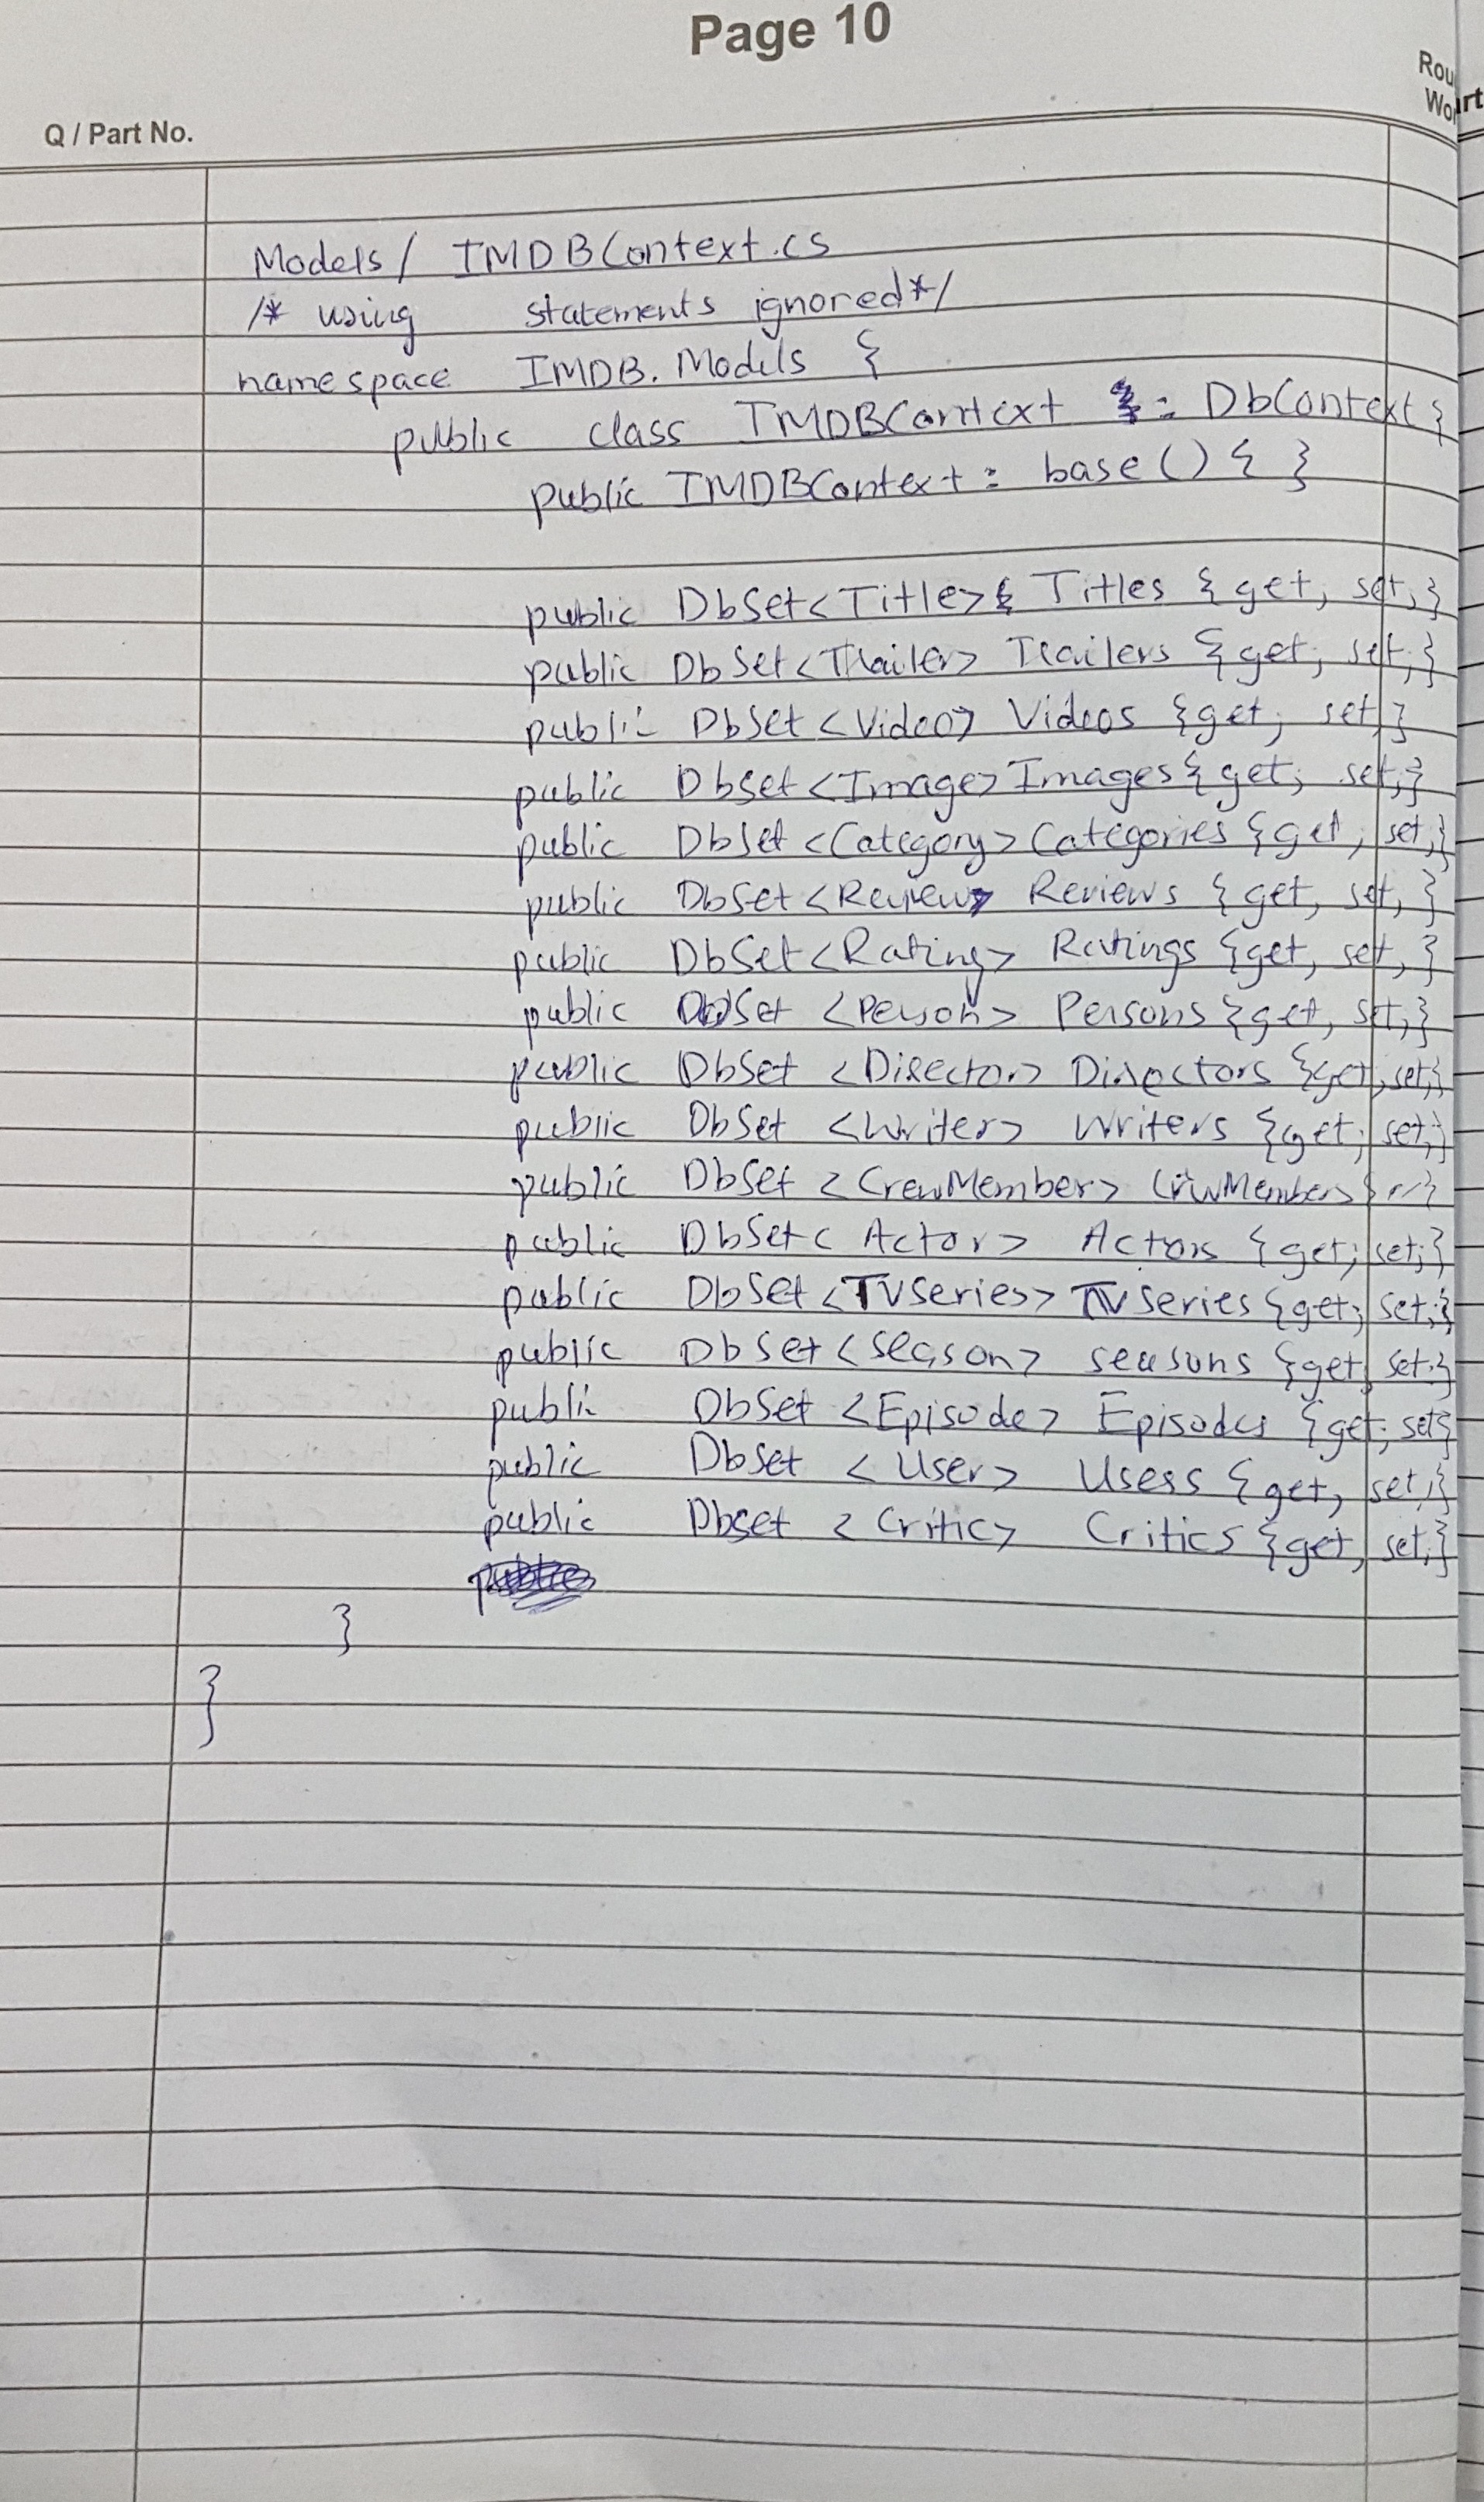 Page 10
Rou
Wor
art
Q / Part No.
Models / IMDBContext.cs
/* using statements ignored*/
namespace IMDB.Models {
public class IMDBContext : DbContext {
public IMDBContext : base() { }
public DbSet<Title> Titles { get; set; }
public DbSet<Trailer> Trailers { get; set; }
public DbSet<Video> Videos {get; set; }
public DbSet<Image> Images { get; set; }
public DbSet<Category> Categories { get; set; }
public DbSet<Review> Reviews { get; set; }
public DbSet<Rating> Ratings {get; set; }
public DbSet <Person> Persons {get; set; }
public DbSet <Director> Directors {get; set;}
public DbSet <Writer> Writers {get; set;}
public DbSet <CrewMember> CrewMembers { }
public DbSet< Actor> Actors {get; set; }
public DbSet <TVSeries> TVSeries {get; set;}
public DbSet <Season> seasons {get; set;}
public DbSet <Episode> Episodes {get; set}
public DbSet < User> Users {get; set;}
public Dbset < Critic> Critics {get; set;}
}
}